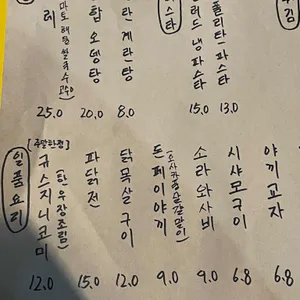 레
마토해장쌀국수(고수)
25.0
합오뎅탕
20.0
란계란탕
8.0
스타
러드냉파스타
15.0
폴리탄파스타
13.0
일품요리
[주말한정]
규스지니코미
(한우장조림)
12.0
파닭전
15.0
닭목살구이
12.0
돈페이야끼
(오사카풍삼겹말이)
9.0
소라와사비
9.0
시샤모구이
6.8
야끼교자
6.8